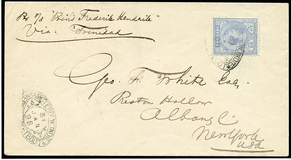 Per S/S "Prins Frederik Hendrik"
Via. Trinidad
Geo. H. White Esq.
Preston Hollow
Albany Co.
New York
USA